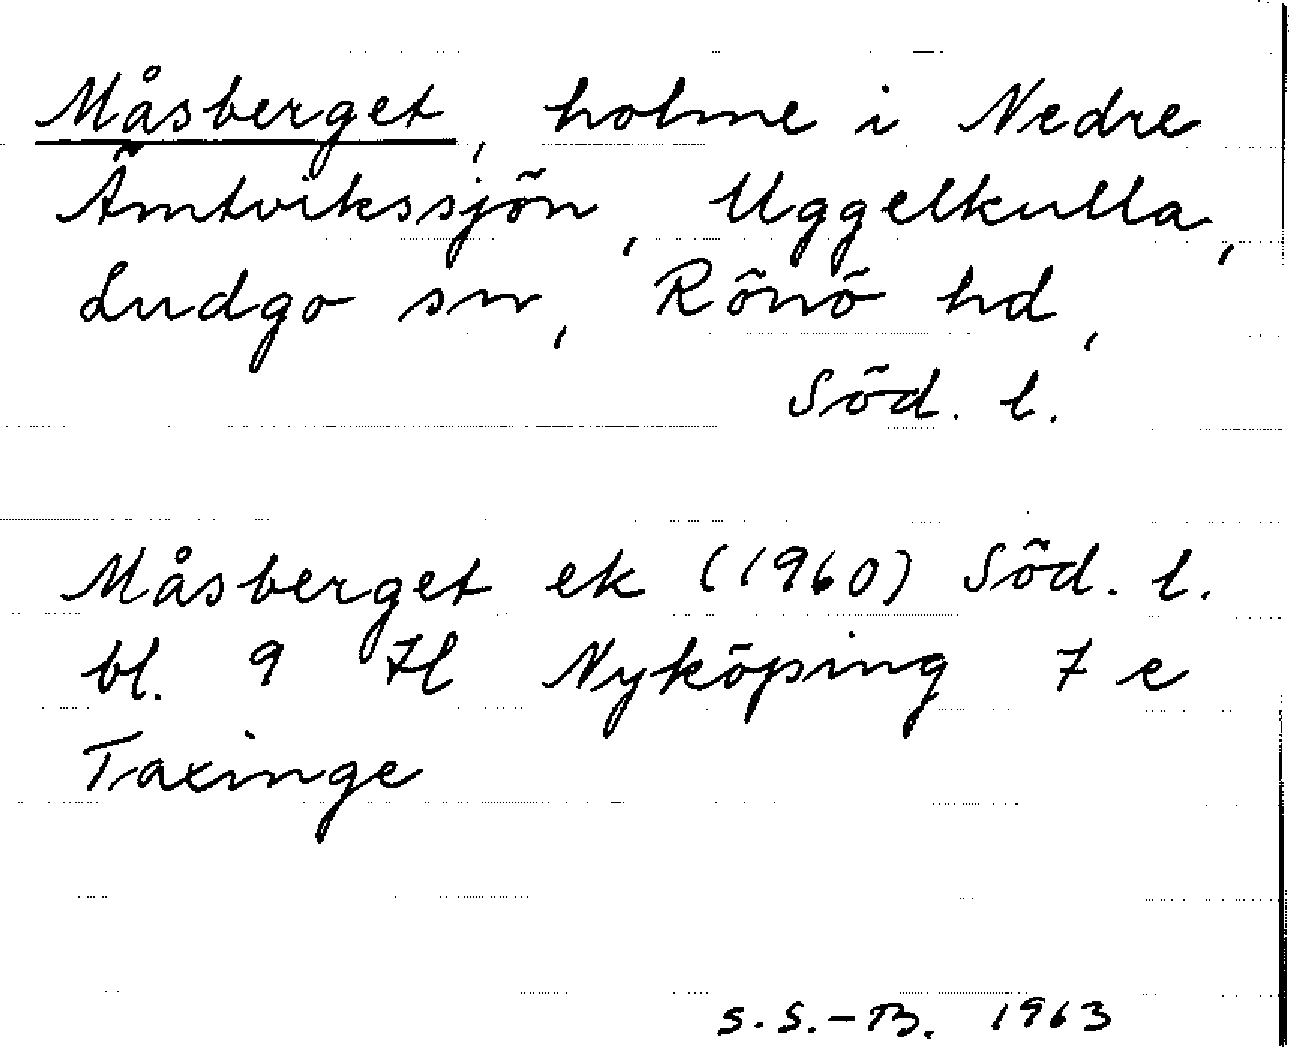 Måsberget, holme i Nedre
Ämtvikssjön, Uggelkulla,
Ludgo sn, Rönö hd,
Söd. l.
Måsberget ek (1960) Söd. l.
bl. 9 H Nyköping 7 e
Taxinge
S. S.-B. 1963